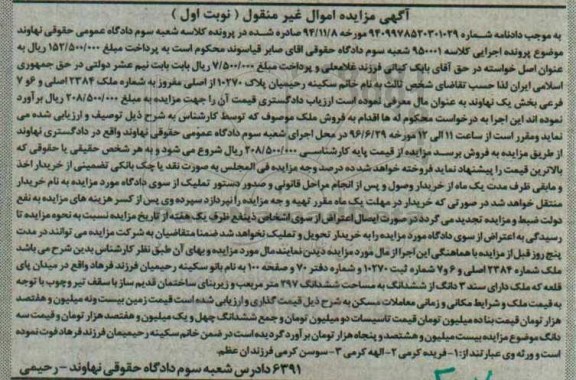 آگهی مزایده اموال غیر منقول ( نوبت اول )
به موجب دادنامه شماره ۹۴۰۹۹۷۸۵۲۰۳۰۱۰۲۹ مورخه ۹۴/۱۱/۸ صادره شده در پرونده کلاسه شعبه سوم دادگاه عمومی حقوقی نهاوند
موضوع پرونده اجرایی کلاسه ۹۵۰۰۰۱ شعبه سوم دادگاه حقوقی اقای صابر قیاسوند محکوم است به پرداخت مبلغ ۱۵۲/۵۰۰/۰۰۰ ریال به
عنوان اصل خواسته در حق آقای بابک کیانی فرزند غلامعلی و پرداخت مبلغ ۷/۵۰۰/۰۰۰ ریال بابت بابت نیم عشر دولتی در حق جمهوری
اسلامی ایران لذا حسب تقاضای شخص ثالث به نام خانم سکینه رحیمیان پلاک ۱۰۲۷۰ از اصلی مفروز به شماره ملک ۲۳۸۴ اصلی و ۶و ۷
فرعی بخش یک نهاوند به عنوان مال معرفی نموده است ارزیاب دادگستری قیمت آن را جهت مزایده به مبلغ ۲۰۸/۵۰۰/۰۰۰ ریال برآورد
نموده اند این اجرا به درخواست محکوم له ها اقدام به فروش ملک موصوف که توسط کارشناس به شرح ذیل توصیف و ارزیابی شده می
نماید ومقرر است از ساعت ۱۱ الی ۱۲ مورخه ۹۶/۶/۲۹ در محل اجرای شعبه سوم دادگاه عمومی حقوقی نهاوند واقع در دادگستری نهاوند
از طریق مزایده به فروش برسد مزایده از قیمت پایه کارشناسی ۲۰۸/۵۰۰/۰۰۰ ریال شروع می شود و به هر شخص حقیقی یا حقوقی که
بالاترین قیمت را پیشنهاد نماید فروخته خواهد شد ده درصد وجه مزایده فی المجلس به صورت نقد یا چک بانکی تضمینی از خریدار اخذ
و مابقی ظرف مدت یک ماه از خریدار وصول و پس از انجام مراحل قانونی و صدور دستور تملیک از سوی دادگاه مورد مزایده به نام خریدار
منتقل خواهد شد در صورتی که خریدار در مهلت یک ماه مقرر تهیه و جه مزایده را نپردازد سپرده وی پس از کسر هزینه های مزایده به نفع
دولت ضبط و مزایده تجدید می گردد در صورت ایصال اعتراض از سوی اشخاص ذینفع ظرف یک هفته از تاریخ مزایده نسبت به نحوه مزایده تا
رسیدگی به اعتراض از سوی دادگاه مورد مزایده را به خریدار تحویل و تملیک نخواهد شد ضمنا متقاضیان به شرکت مزایده می توانند در مدت
پنج روز قبل از مزایده با هماهنگی این اجرا از مال مورد مزایده دیدن نمایند مال مورد مزایده و بهای آن طبق نظر کارشناس بدین شرح می باشد
ملک شماره ۲۳۸۴ اصلی و ۶و۷ شماره ثبت ۱۰۲۷۰ و شماره دفتر ۷۰ و صفحه ۱۰۰ به نام بانو سکینه رحیمیان فرزند فرهاد واقع در میدان پای
قلعه که ملک دارای سند ۳ دانگ از ششدانگ به مساحت ششدانگ ۲۹۷ متر مربعب و زیربنای ساختمان قدیم ساز با سقف تیر و چوب با توجه
به قیمت ملک و شرایط مکانی و زمانی معاملات مسکن به شرح ذیل قیمت گذاری و ارزیابی شده است قیمت زمین بیست ونه میلیون و هفتصد
هزار تومان قیمت بنا ده میلیون تومان قیمت تاسیسات دو میلیون تومان و جمع ششدانگ چهل و یک میلیون و هفتصد هزار تومان و قیمت سه
دانگ موضوع مزایده بیست میلیون و هشتصد و پنجاه هزار تومان برآورد گردیده است در ضمن خانم سکینه رحیمیمان فرزند فرهاد فوت نموده
است و ورثه وی عبارتند از: ۱- فریده کرمی ۲- الهه کرمی ۳- سوسن کرمی فرزندان عظم.
۶۳۹۱ دادرس شعبه سوم دادگاه حقوقی نهاوند - رحیمی